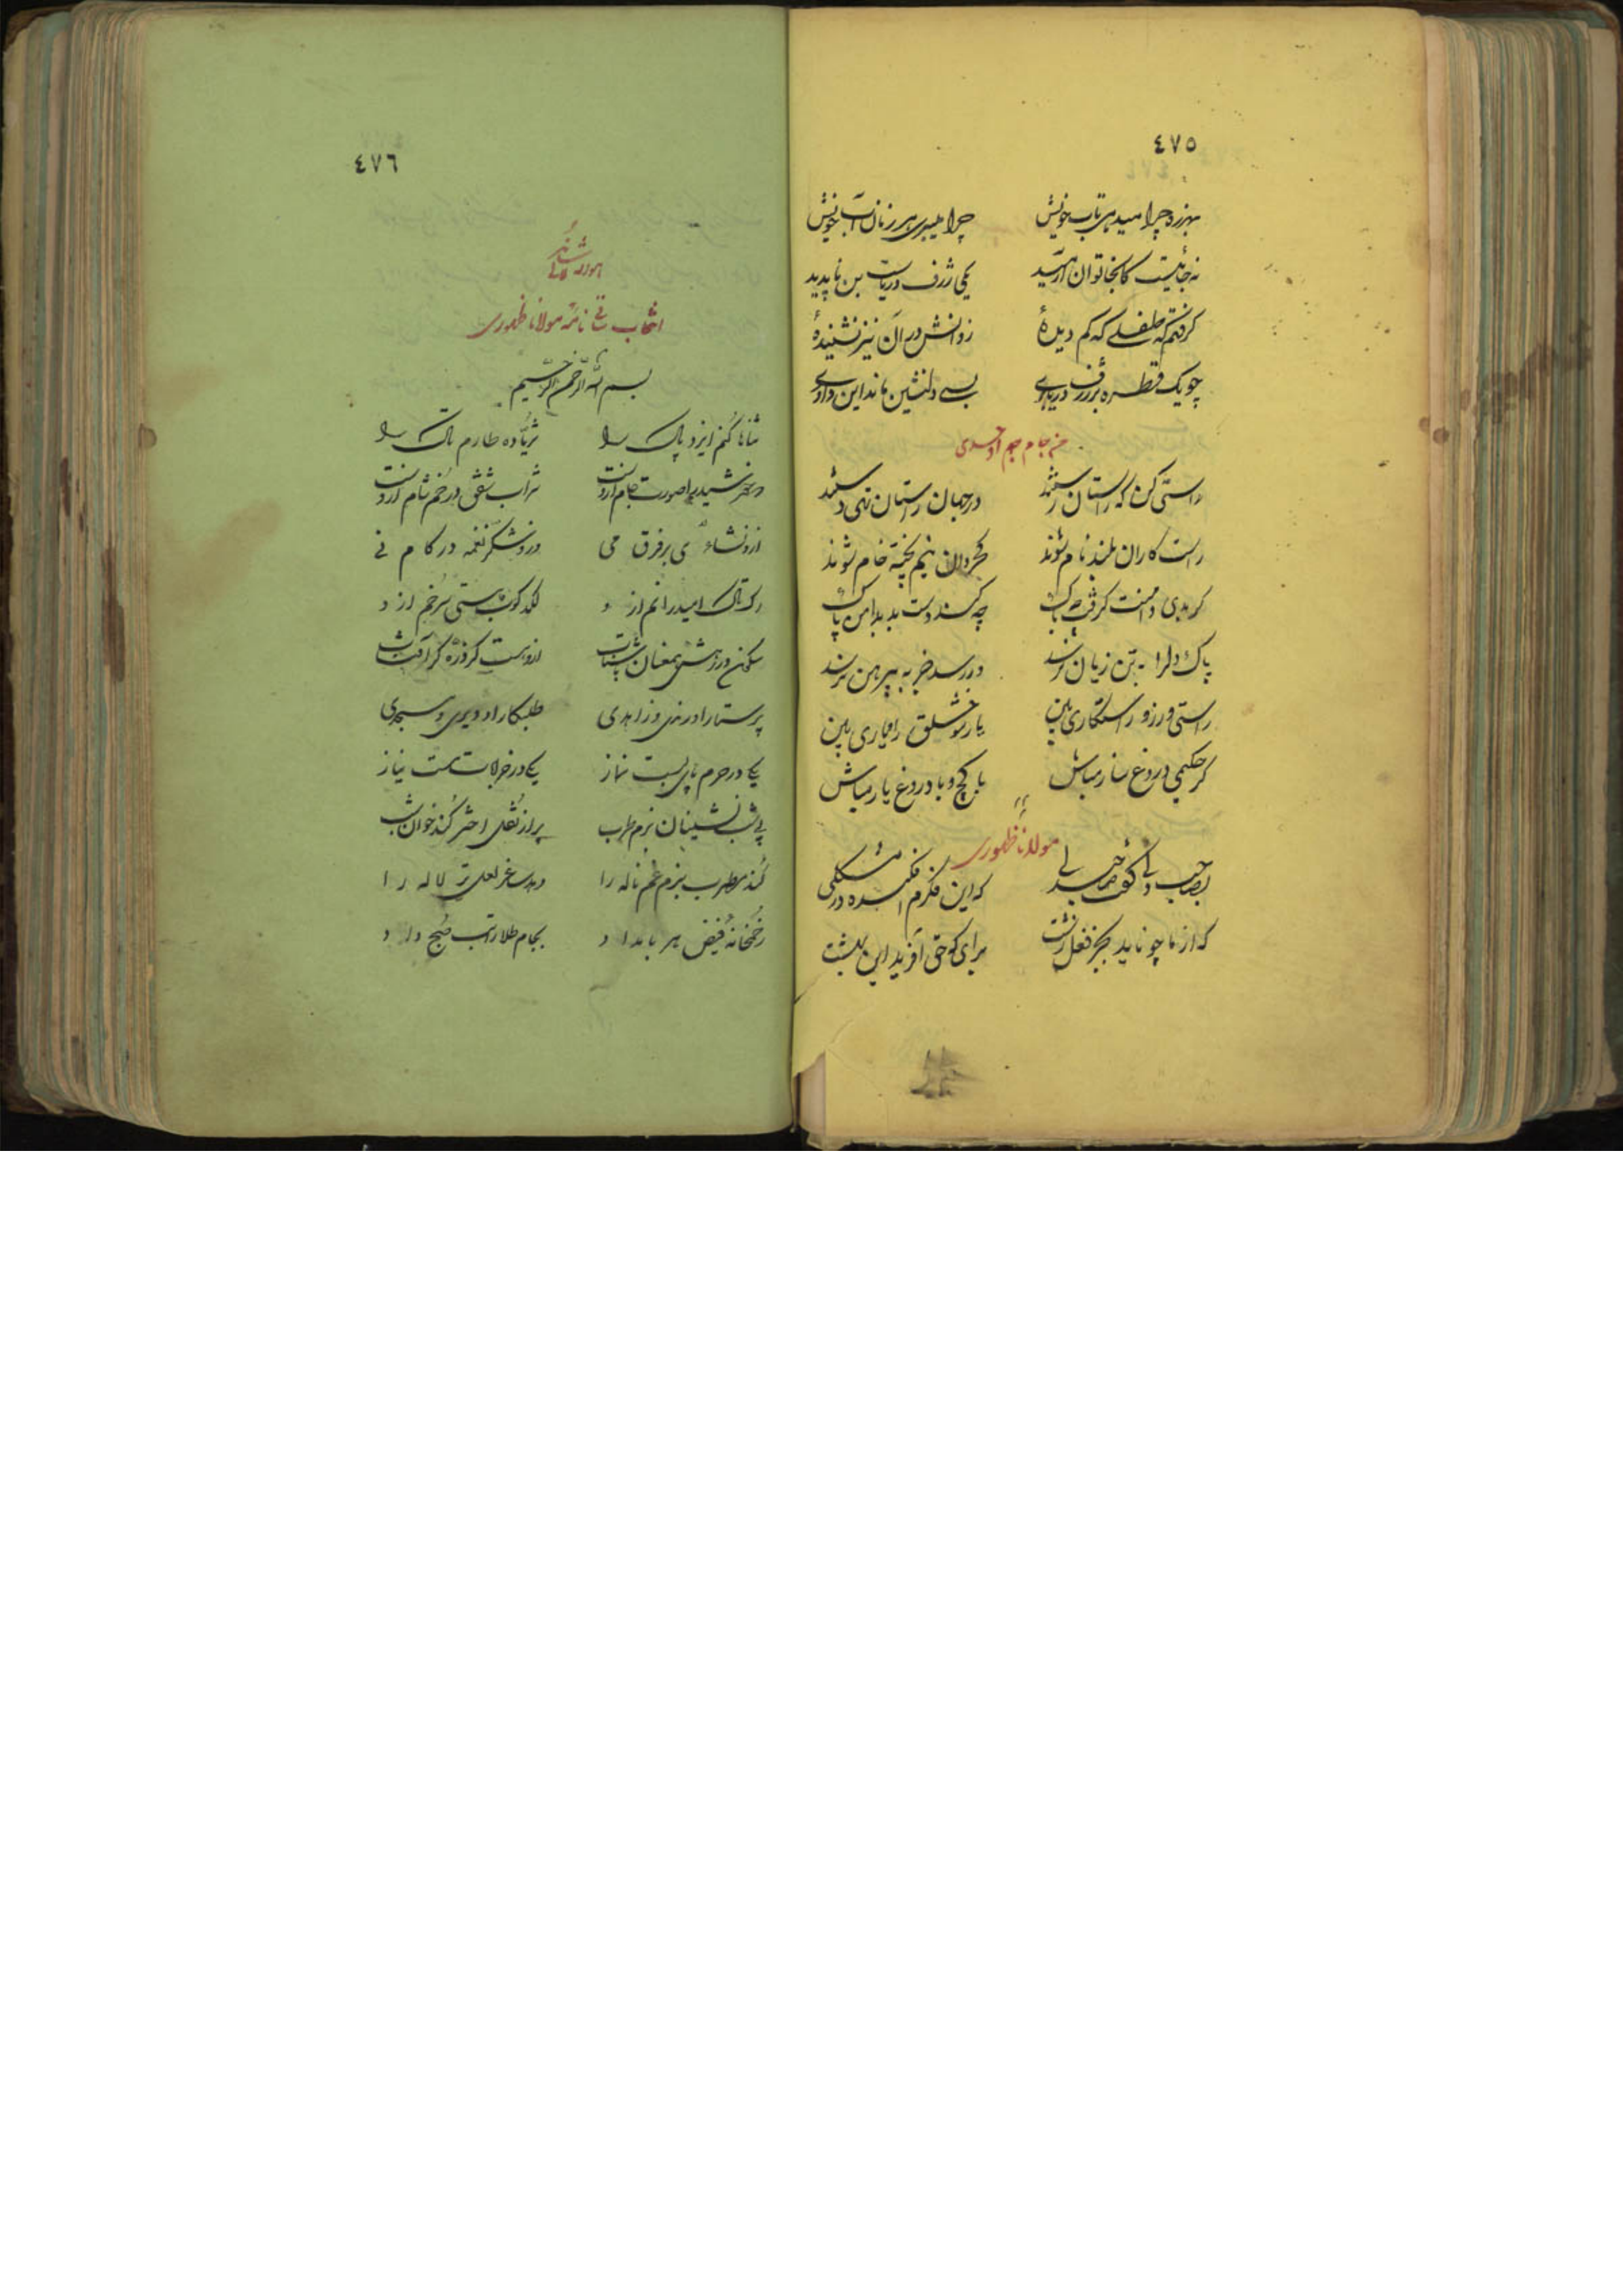 ٤٧٥
بهرزه چرا میدهی تاب خویش چرا میبری هر زمان آب خویش
نه جائیست کانجا توان آرمید یکی ژرف دریاست بن ناپدید
گرفتم که طفلی که کم دیدهٔ ز دانش در آن نیز نشنیدهٔ
چو یک قطره بر ژرف دریا بری بسی دلنشین ماند این داوری
من جام جم اوحدی
راستی کن که راستان رستند در جهان راستان قوی دستند
راست کاران بلند نام شوند کجروان نیم پخته خام شوند
گر بدی دامنت گرفت چه باک چه کند دست بد بدامن پاک
پاک دلرا به تن زیان نرسد ور رسد جز به پیرهن نرسد
راستی ورز و رستگاری بین یار شو خلق را و یاری بین
گر حکیمی دروغ ساز مباش با کج و با دروغ یار مباش
مولانا ظهوری
بصاحب دلی گفت که این فکرم افکنده در مشکلی
که از ما چو ناید بجز فعل زشت برای که حق آفرید این بهشت
٤٧٦
انتخاب ساقی نامه مولانا ظهوری
بسم الله الرحمن الرحیم
ثناها کنم ایزد پاک را ثریا ده طارم تاک را
شراب شفق در خم شام ازوست
ازو نشاء می بر فرق می وزو شکر نغمه در کام نی
رک تاک امید را نم ازو لکد کوب مستی سر خم ازو
پرستار او رندی و زاهدی طلبکار او دیری و مسجدی
یکی در حرم پای بست نماز یکی در خرابات مست نیاز
پی شب نشینان بزم طرب پر از نقل اختر کند خوان شب
کند مطرب بزم غم ناله را دهد ساغر لعل تر لاله را
ز خمخانه فیض هر بامداد بجام طلا راتب صبح داد